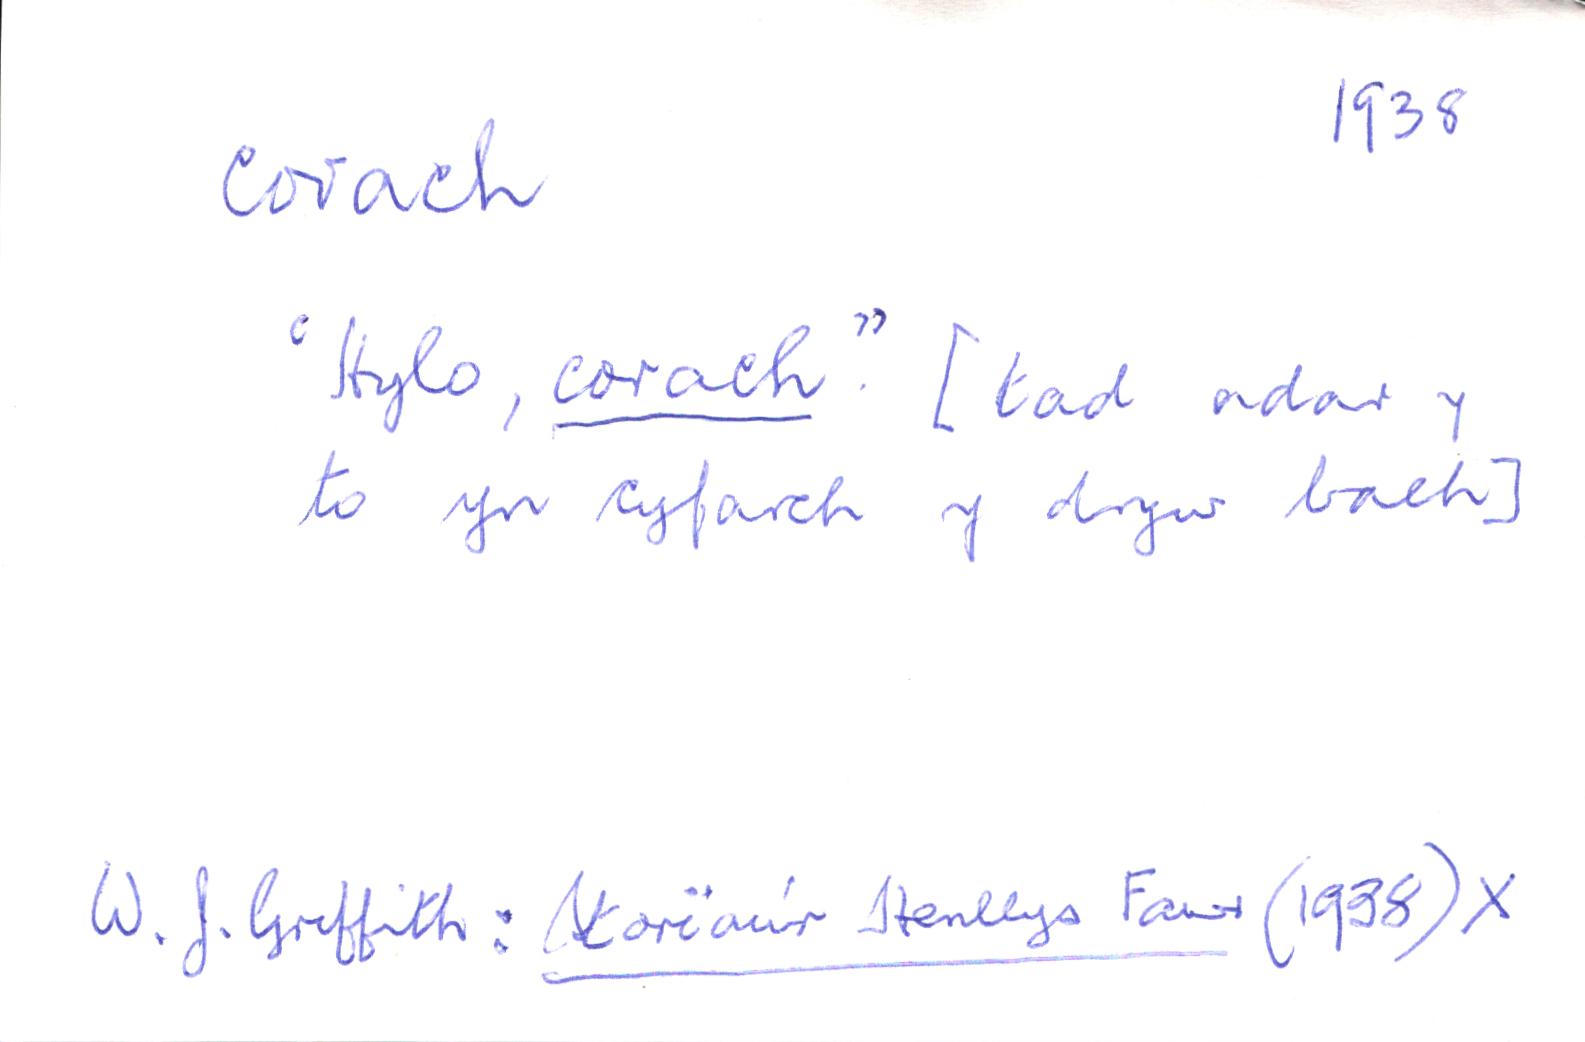 1938
corach
"Hylo, corach." [tad adar y
to yn cyfarch y dryw bach]
W. J. Griffith: Storïau'r Henllys Fawr (1938) X